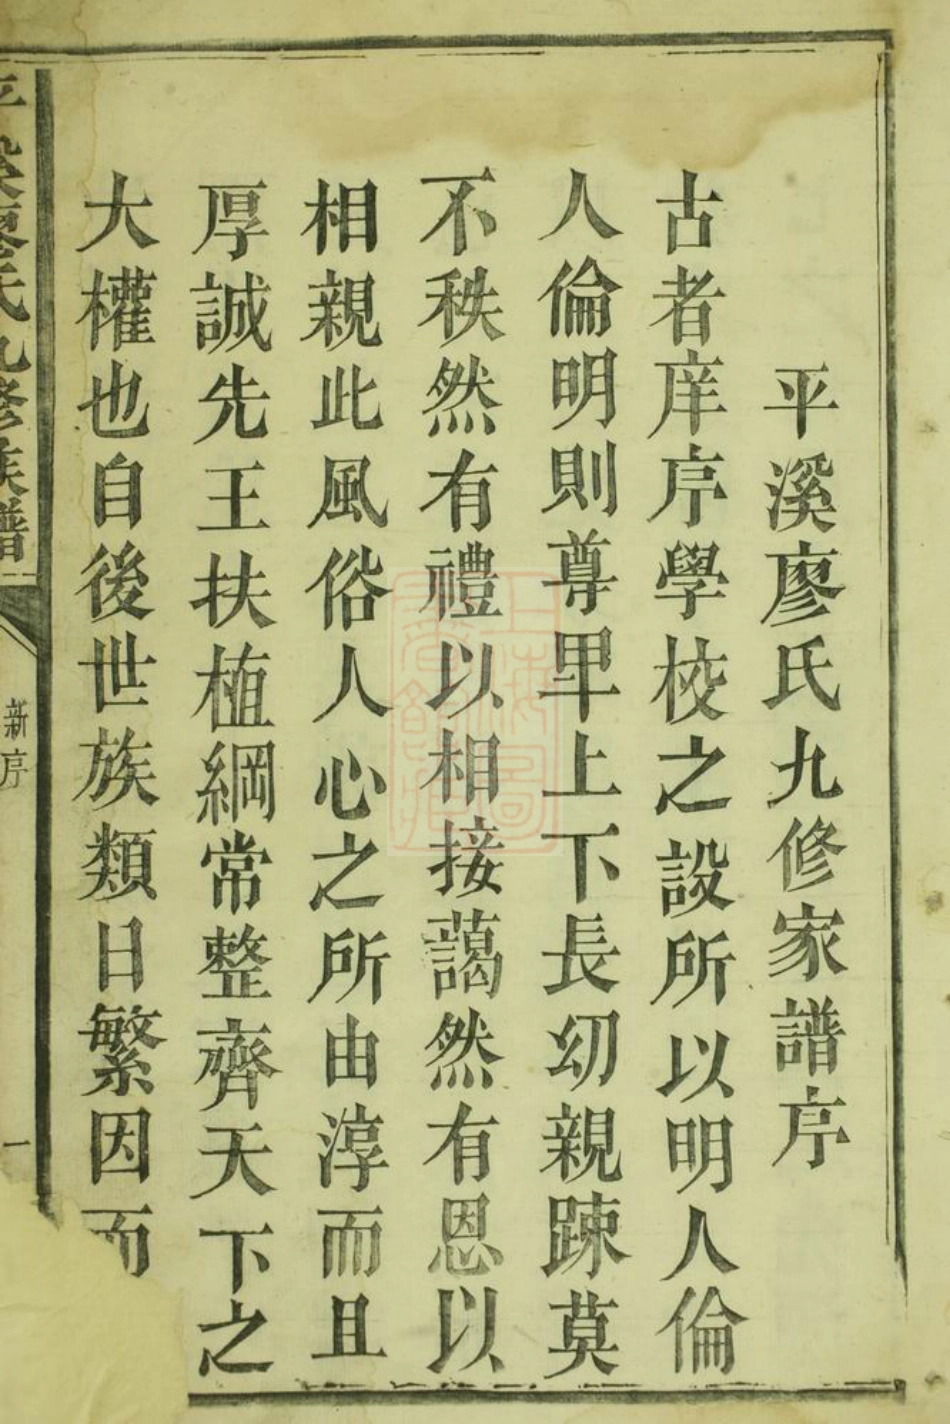 平溪廖氏九修家譜序
古者庠序學校之設所以明人倫
人倫明則尊卑上下長幼親踈莫
不秩然有禮以相接藹然有恩以
相親此風俗人心之所由淳而且
厚誠先王扶植綱常整齊天下之
大權也自後世族類日繁因而
平溪廖氏九修族譜
新序
一